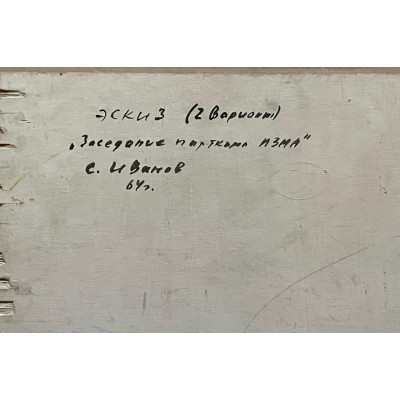 ЭСКИЗ (2 Вариант)
„Заседание парткома МЗМА"
С. ИВанов
64г.